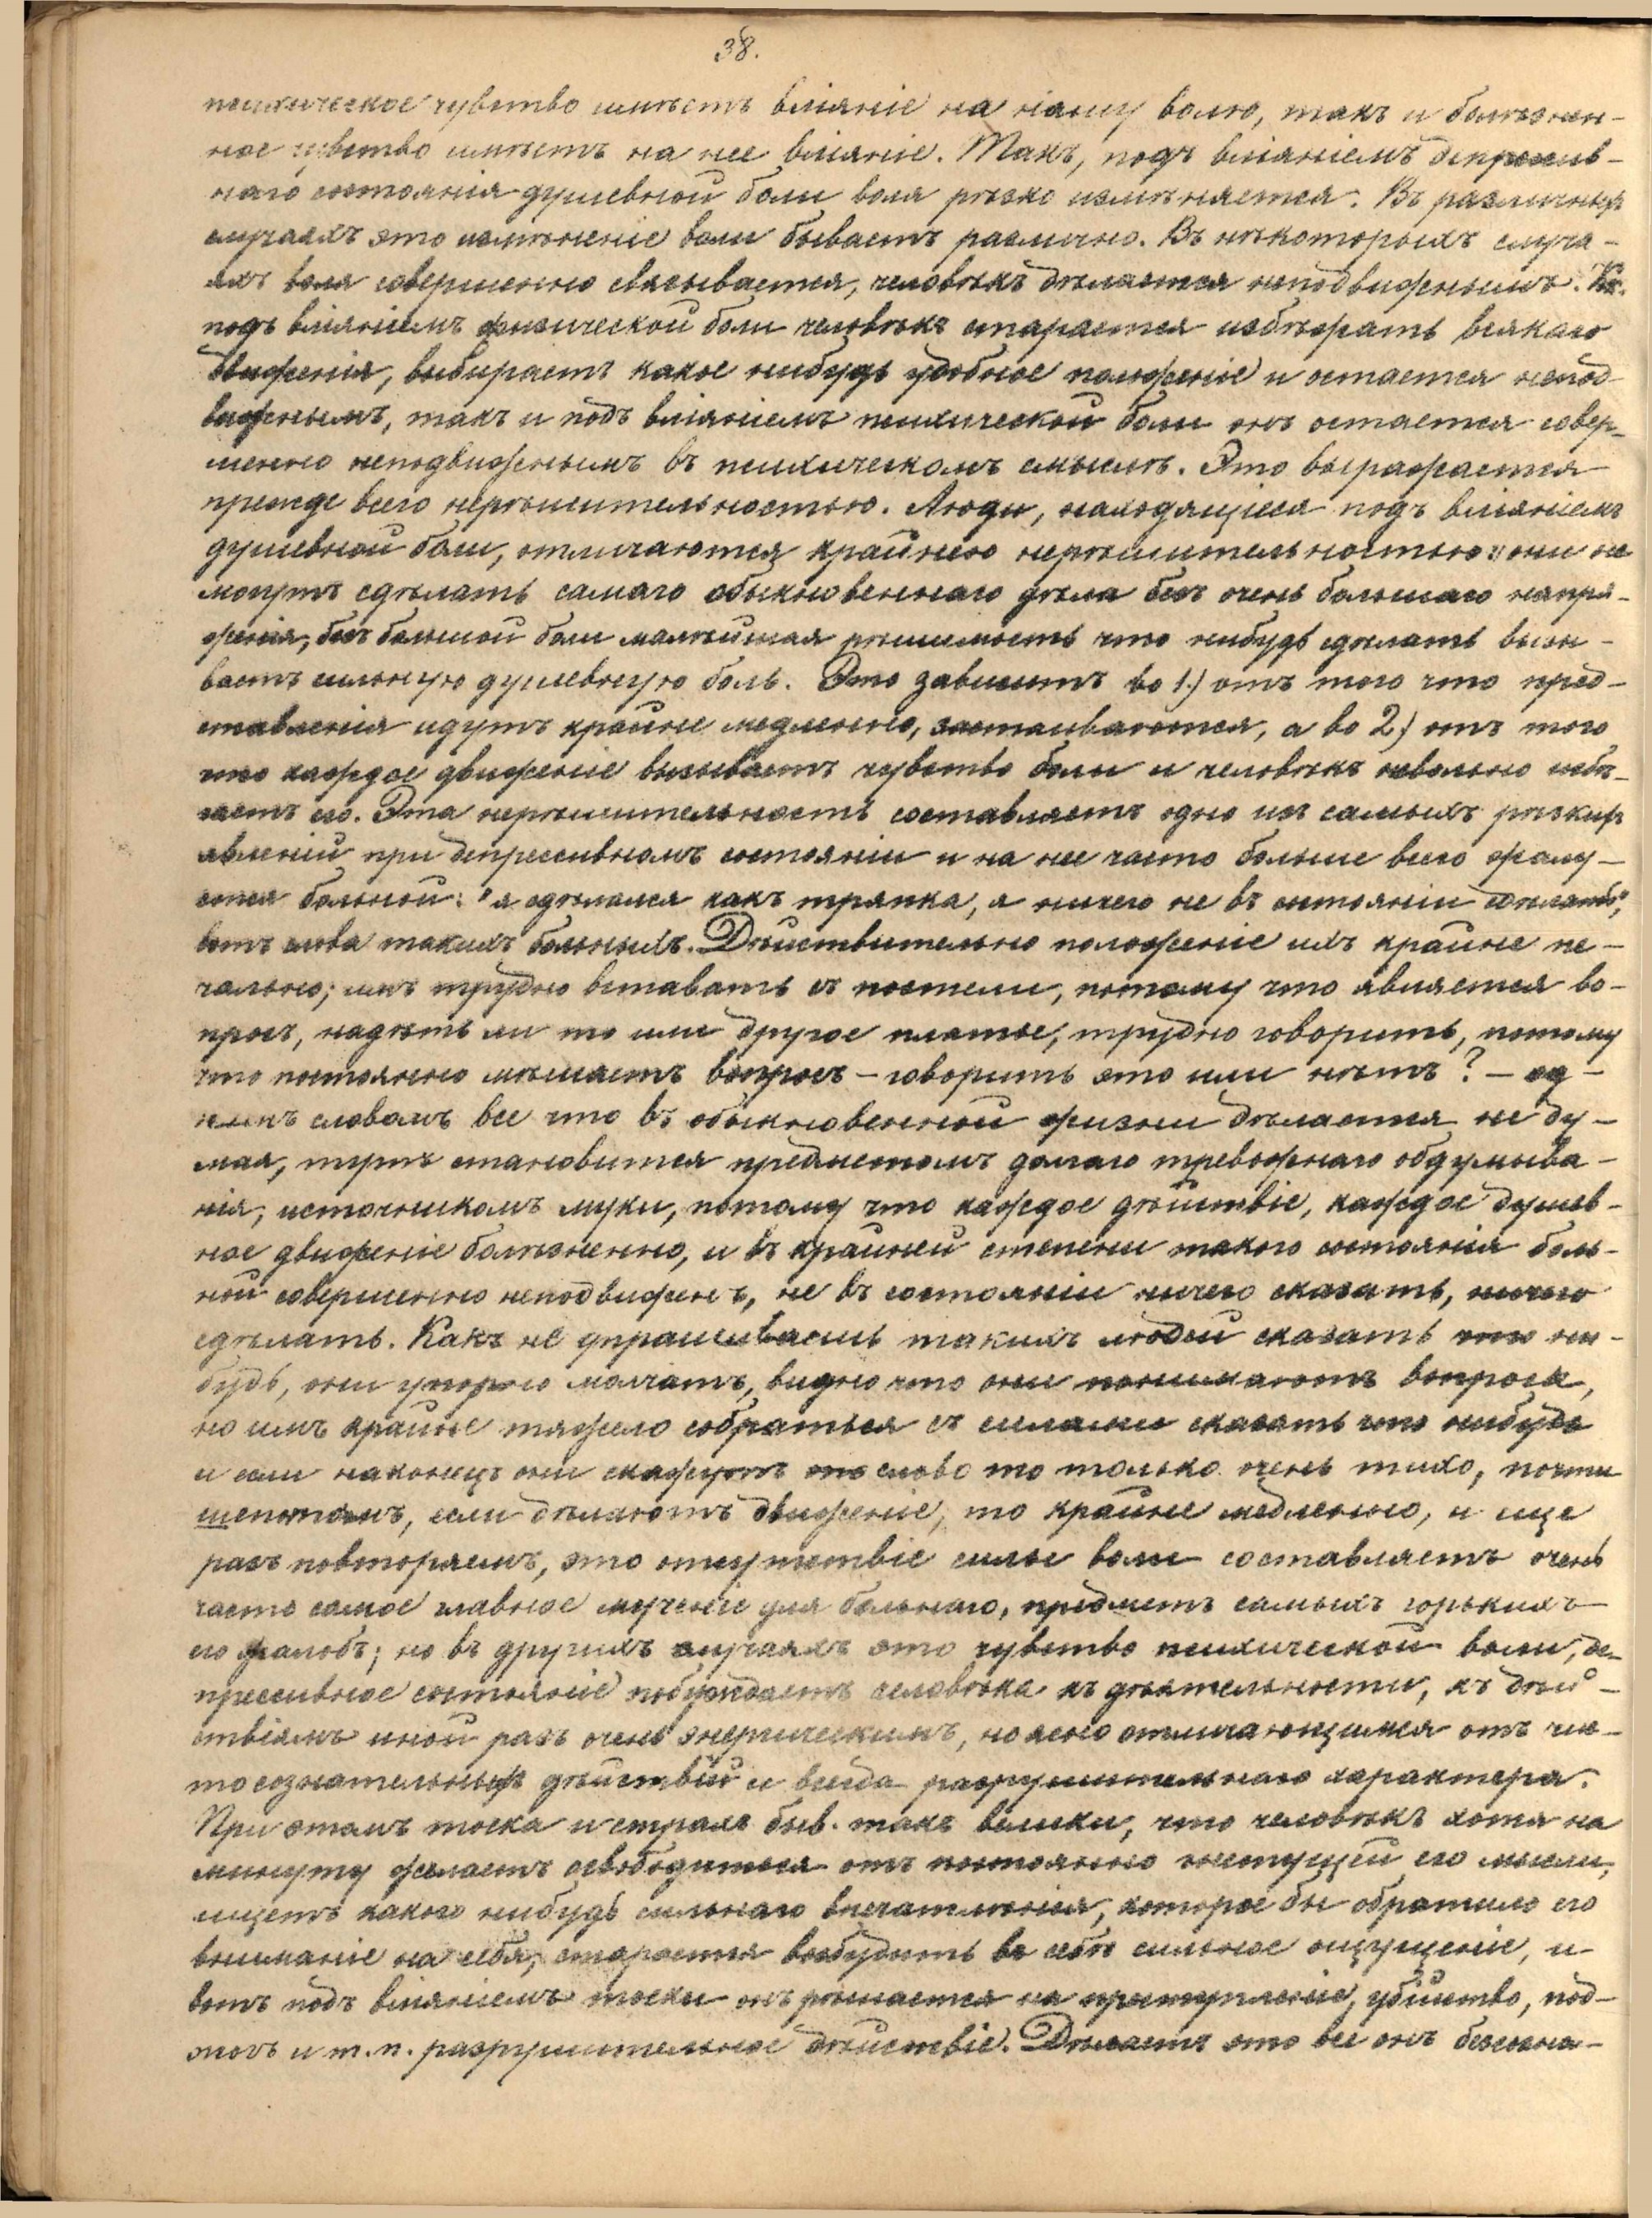 38.
психическое чувство имѣетъ вліяніе на нашу волю, такъ и болѣзнен-
ное чувство имѣетъ на нее вліяніе. Такъ, подъ вліяніемъ депрессив-
наго состоянія душевной боли воля рѣзко измѣняется. Въ различныхъ
случаяхъ это измѣненіе воли бываетъ различно. Въ нѣкоторыхъ случа-
яхъ воля совершенно связывается, человѣкъ дѣлается неподвижнымъ. Ка.
подъ вліяніемъ физической боли человѣкъ старается избѣжать всякаго
движенія, выбираетъ какое нибудь удобное положеніе и остается непод-
вижнымъ, такъ и подъ вліяніемъ психической боли онъ остается совер-
шенно неподвижнымъ въ психическомъ смыслѣ. Это выражается
прежде всего нерѣшительностью. Люди, находящіеся подъ вліяніемъ
душевной боли, отличаются крайнею нерѣшительностью: они не
могутъ сдѣлать самаго обыкновеннаго дѣла безъ очень большаго напря-
женія, безъ большой боли малѣйшая рѣшимость что нибудь сдѣлать вызы-
ваетъ сильную душевную боль. Это зависитъ во 1.) отъ того что пред-
ставленія идутъ крайне медленно, застаиваются, а во 2.) отъ того
что каждое движеніе вызываетъ чувство боли и человѣкъ невольно избѣ-
гаетъ его. Эта нерѣшительность составляетъ одно изъ самыхъ рѣзкихъ
явленій при депрессивномъ состояніи и на нее часто больше всего жалу-
ется больной: "я сдѣлался какъ тряпка, я ничего не въ состояніи сдѣлать",
вотъ слова такихъ больныхъ. Дѣйствительно положеніе ихъ крайне пе-
чально; имъ трудно вставать съ постели, потому что является во-
просъ, надѣть ли то или другое платье, трудно говорить, потому
что постоянно мѣшаетъ вопросъ - говорить это или нѣтъ? - од-
нимъ словомъ все что въ обыкновенной жизни дѣлается не ду-
мая, тутъ становится предметомъ долгаго тревожнаго обдумыва-
нія, источникомъ муки, потому что каждое дѣйствіе, каждое душев-
ное движеніе болѣзненно, и въ крайней степени такого состоянія боль-
ной совершенно неподвиженъ, не въ состояніи ничего сказать, ничего
сдѣлать. Какъ не упрашиваешь такихъ людей сказать что ни-
будь, они упорно молчатъ, видно что они понимаютъ вопроса,
но имъ крайне тяжело собраться съ силами сказать что нибудь
и если наконецъ они скажутъ это слово то только очень тихо, почти
шепотомъ, если дѣлаютъ движеніе, то крайне медленно, и еще
разъ повторяемъ, это отсутствіе силы воли составляетъ очень
часто самое главное мученіе для больнаго, предметъ самыхъ горькихъ
его жалобъ; но въ другихъ случаяхъ это чувство психической боли, де-
прессивное состояніе побуждаетъ человѣка къ дѣятельности, къ дѣй-
ствіямъ иной разъ очень энергическимъ, но ясно отличающимся отъ чис-
то сознательныхъ дѣйствій и всегда разрушительнаго характера.
При этомъ тоска и страхъ быв. такъ велики, что человѣкъ хотя на
минуту желаетъ освободиться отъ постоянно гнетущей его мысли,
ищетъ какого нибудь сильнаго впечатлѣнія, которое бы обратило его
вниманіе на себя, старается возбудить въ себѣ сильное ощущеніе, и
вотъ подъ вліяніемъ тоски онъ рѣшается на преступленіе, убійство, под-
жогъ и т. п. разрушительное дѣйствіе. Дѣлаетъ это все онъ безсозна-